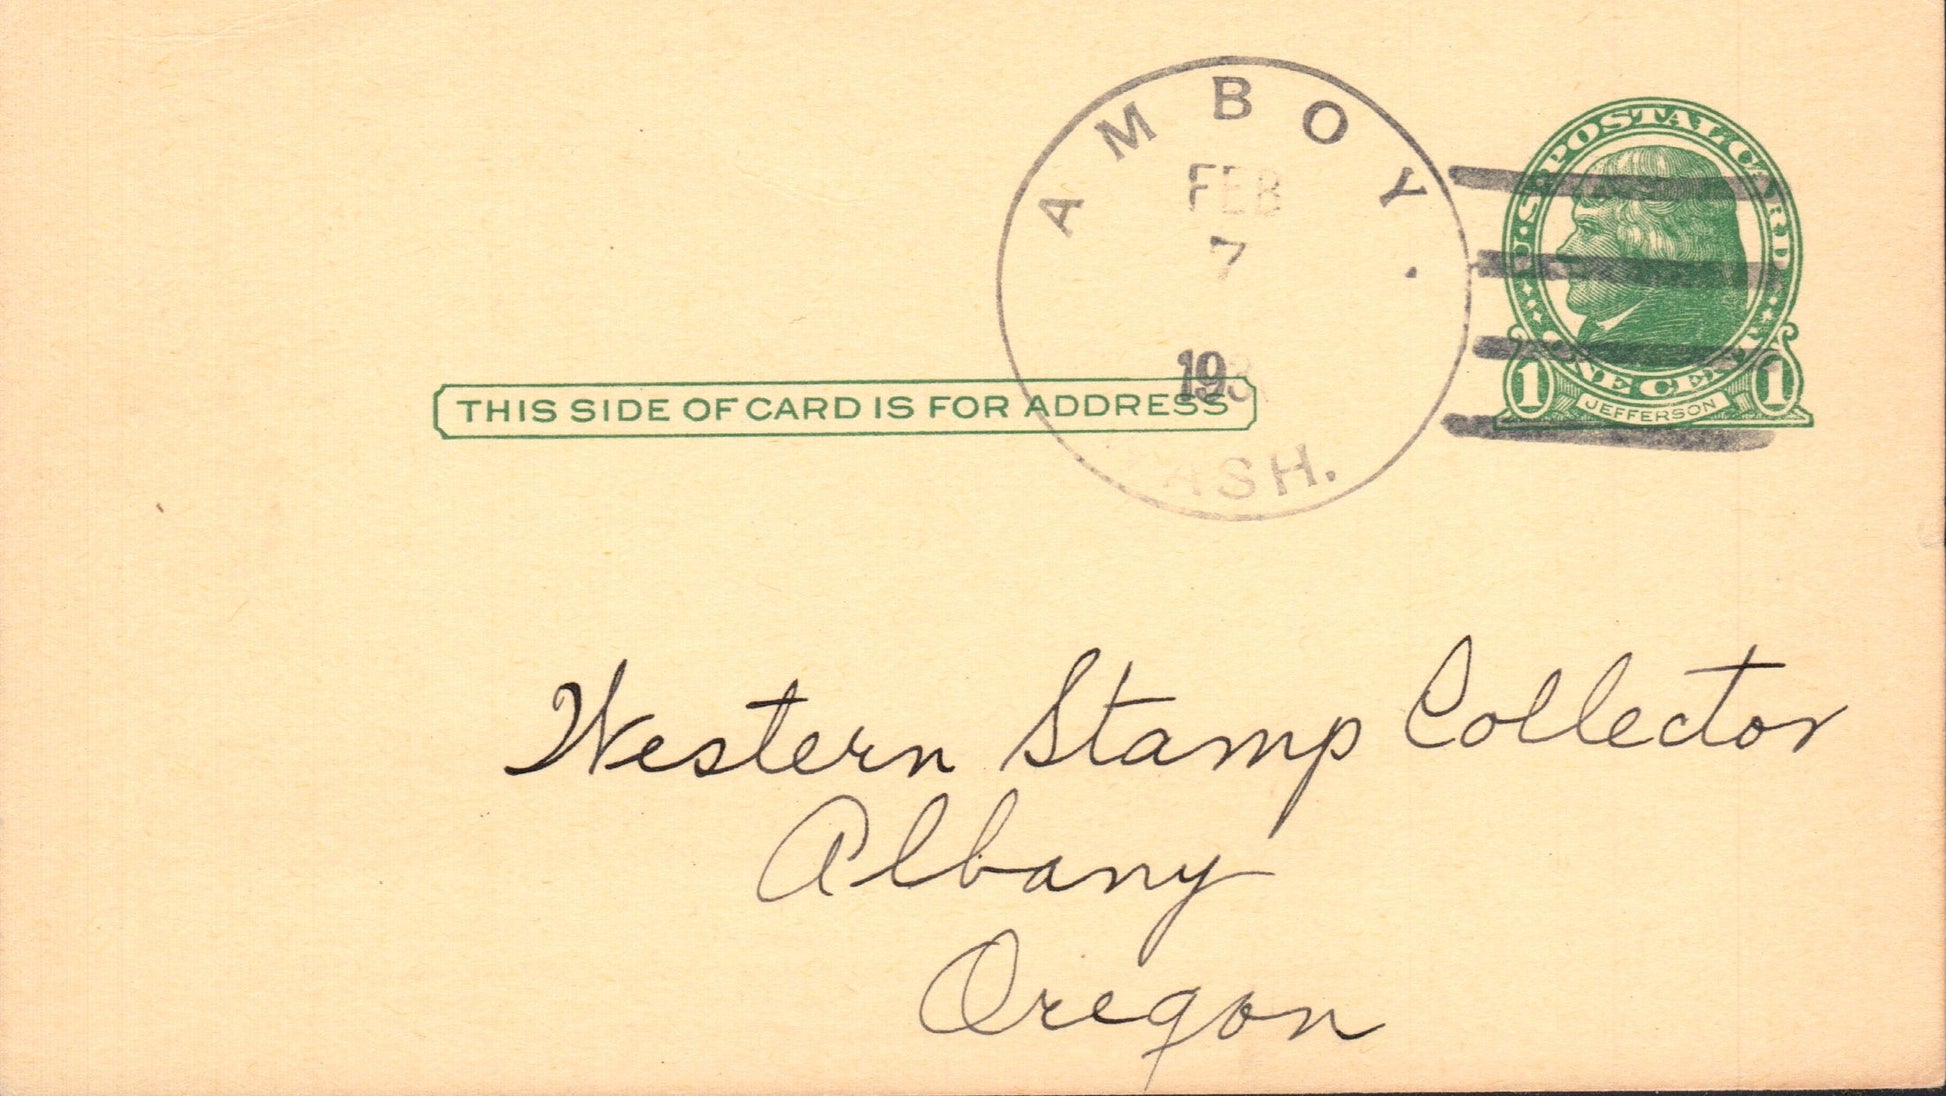 AMBOY.
FEB
7
193
ASH.
U·S·POSTAL CARD
ONE CENT
1 JEFFERSON 1
THIS SIDE OF CARD IS FOR ADDRESS
Western Stamp Collector
Albany
Oregon